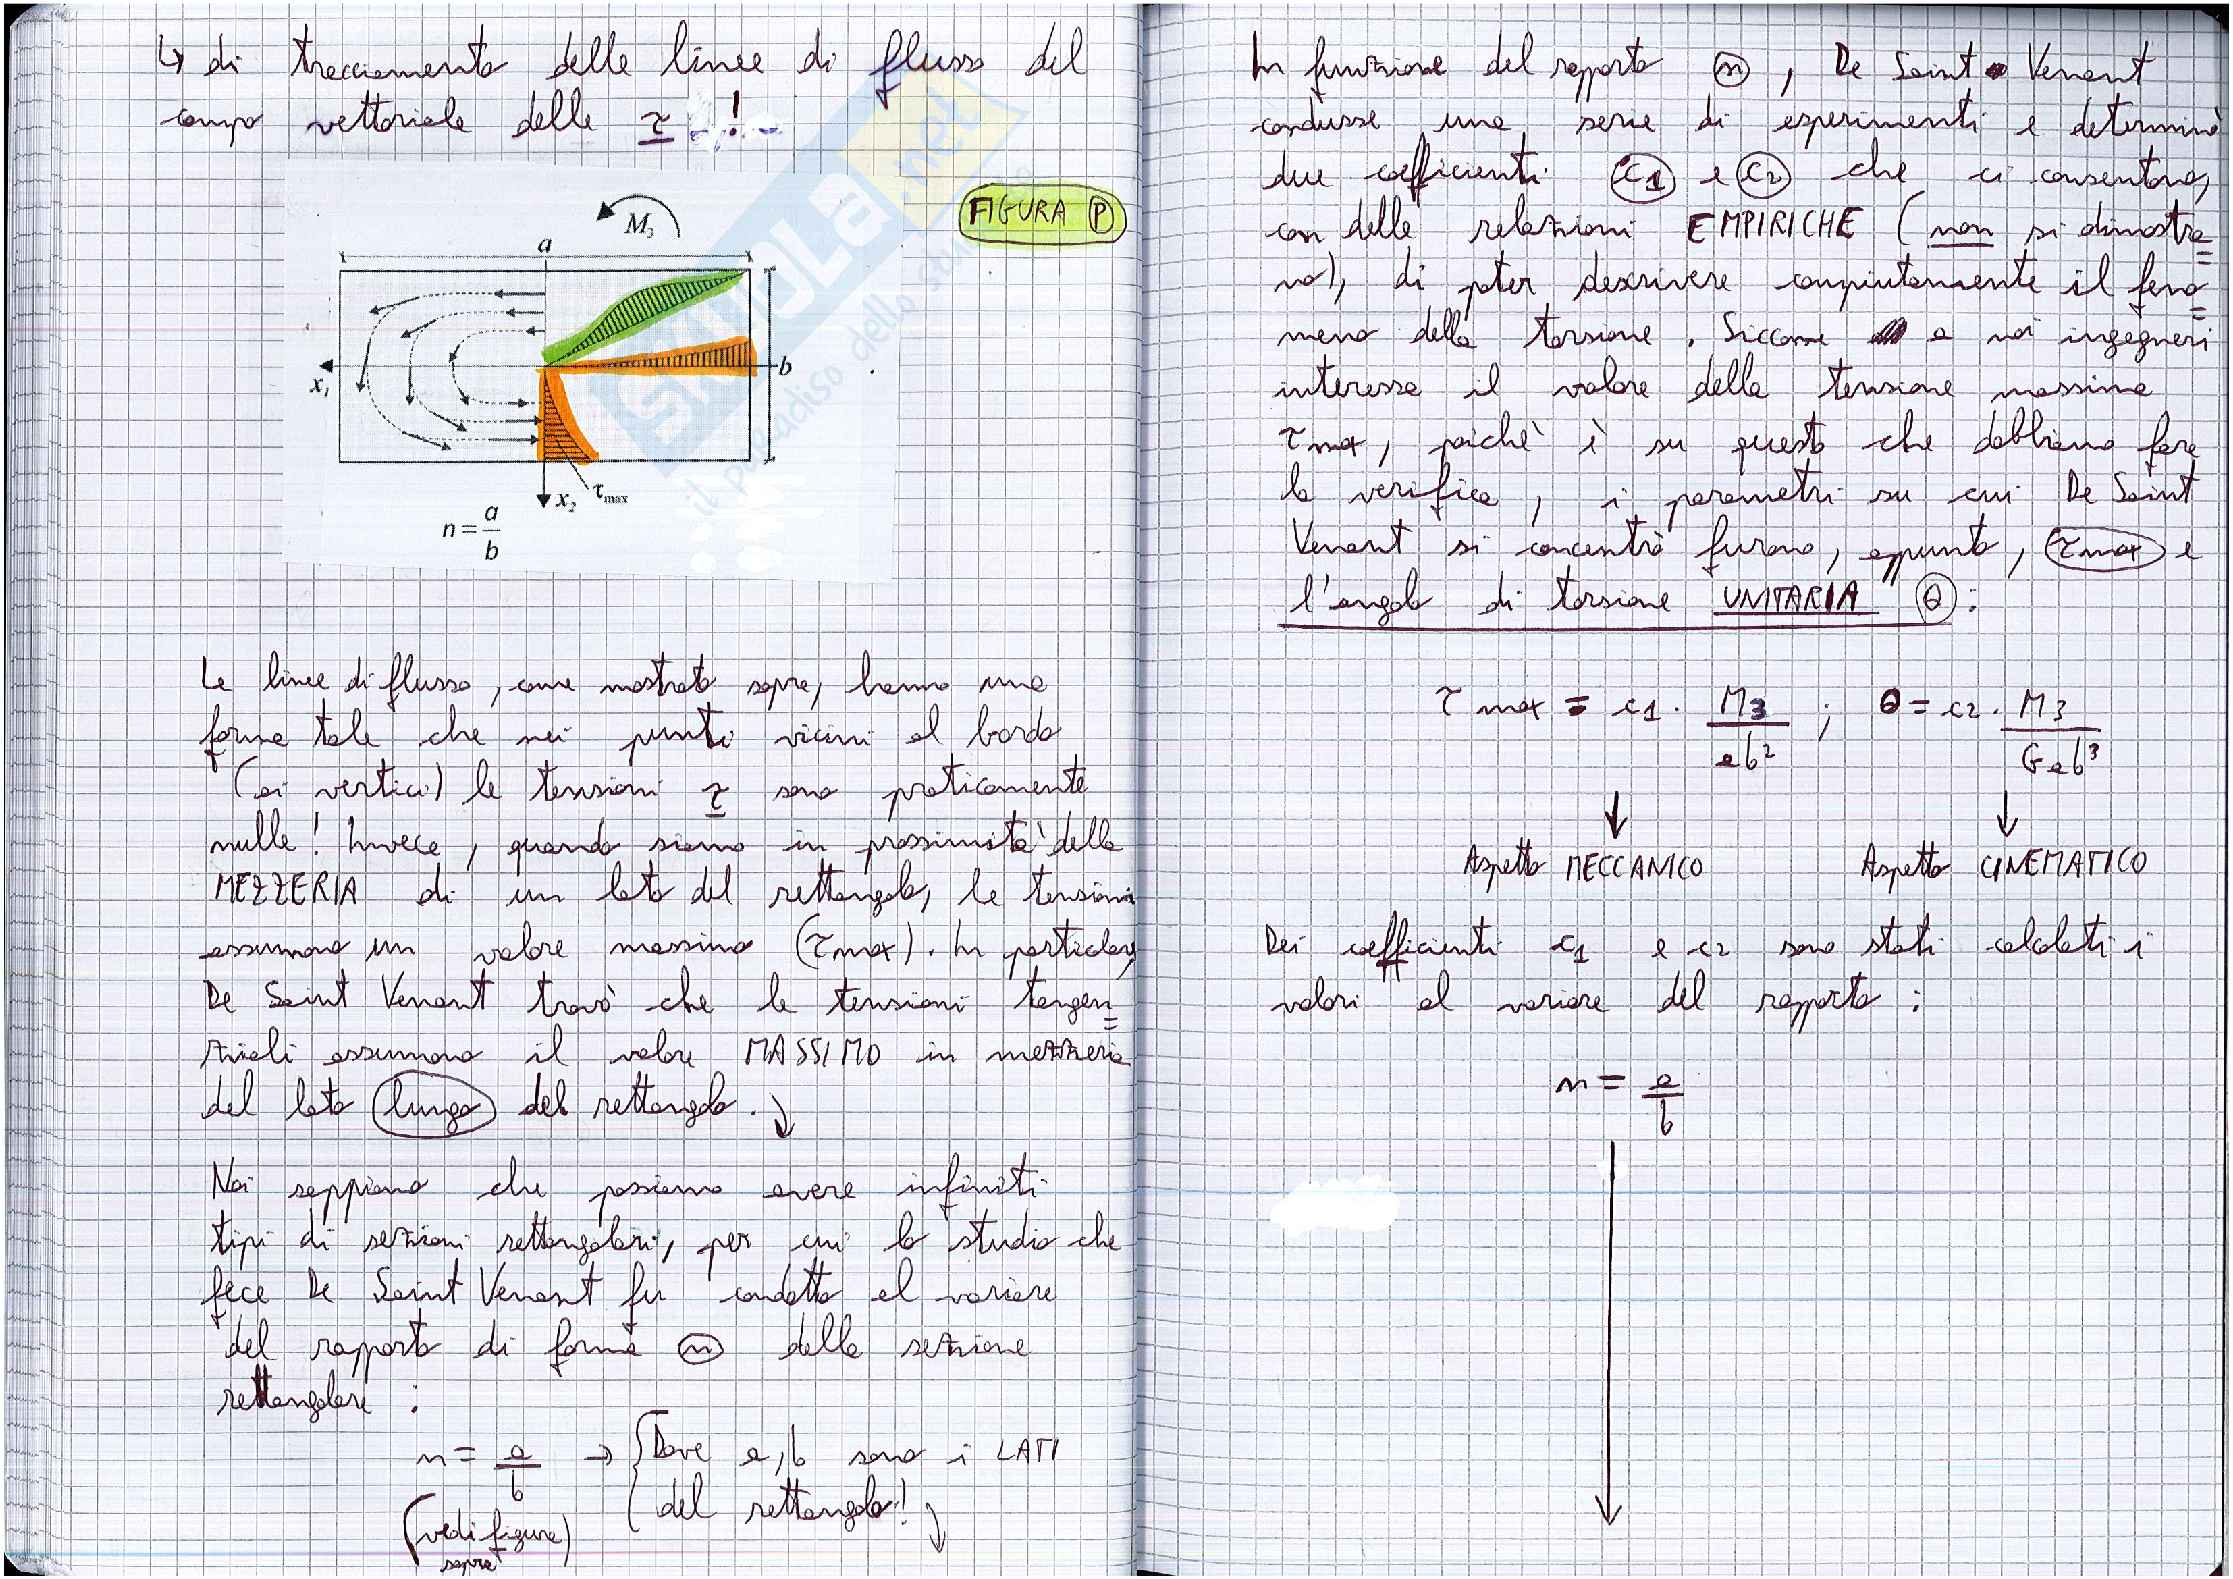 ↳ di tracciamento delle linee di flusso del
campo vettoriale delle τ !
FIGURA P
M3
a
b
x1
x2
τmax
n = a/b
Le linee di flusso, come mostrato sopra, hanno una
forma tale che nei punti vicini al bordo
(ai vertici) le tensioni τ sono praticamente
nulle! Invece, quando siamo in prossimità della
MEZZERIA di un lato del rettangolo, le tensioni
assumono un valore massimo (τmax). In particolare,
De Saint Venant trovò che le tensioni tangen=
ziali assumono il valore MASSIMO in mezzeria
del lato lungo del rettangolo.
Noi sappiamo che possiamo avere infiniti
tipi di sezioni rettangolari, per cui lo studio che
fece De Saint Venant fu condotto al variare
del rapporto di forma n della sezione
rettangolare :
n = a/b → { Dove a,b sono i LATI
del rettangolo!
(vedi figura
sopra)
In funzione del rapporto n, De Saint Venant
condusse una serie di esperimenti e determinò
due coefficienti c1 e c2 che ci consentono,
con delle relazioni EMPIRICHE (non si dimostra=
no), di poter descrivere compiutamente il feno=
meno della torsione. Siccome a noi ingegneri
interessa il valore della tensione massima
τmax, poichè è su questo che dobbiamo fare
la verifica, i parametri su cui De Saint
Venant si concentrò furono, appunto, τmax e
l'angolo di torsione UNITARIA θ :
τmax = c1 · M3/ab² ; θ = c2 · M3/Gab³
Aspetto MECCANICO Aspetto CINEMATICO
Dei coefficienti c1 e c2 sono stati calcolati i
valori al variare del rapporto :
n = a/b
SKUOLA.net
il paradiso dello studente